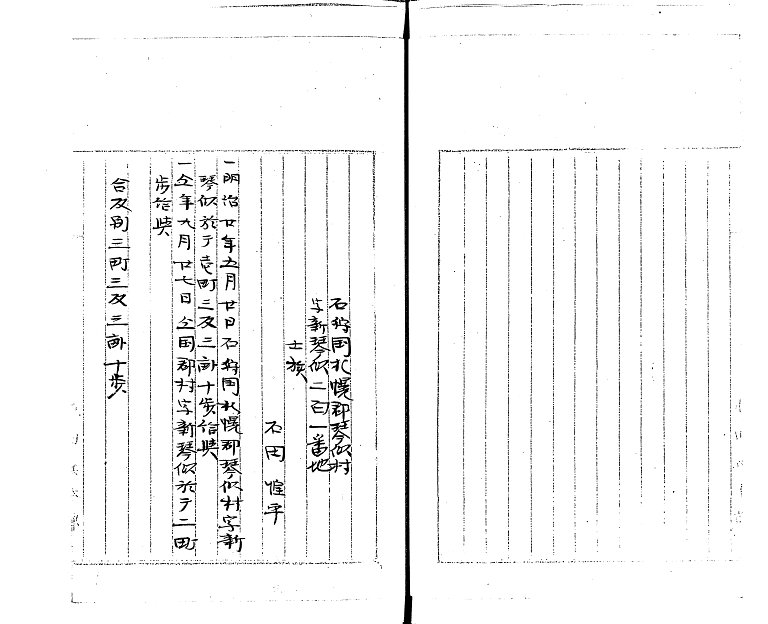 石狩国札幌郡琴似村
字新琴似二百一番地
士族
石田 惟平
一明治廿年五月廿日石狩国札幌郡琴似村字新
琴似於テ壱町三反三畝十歩給与
一仝年九月廿七日仝国郡村字新琴似於テ二町
歩給与
合反別三町三反三畝十歩